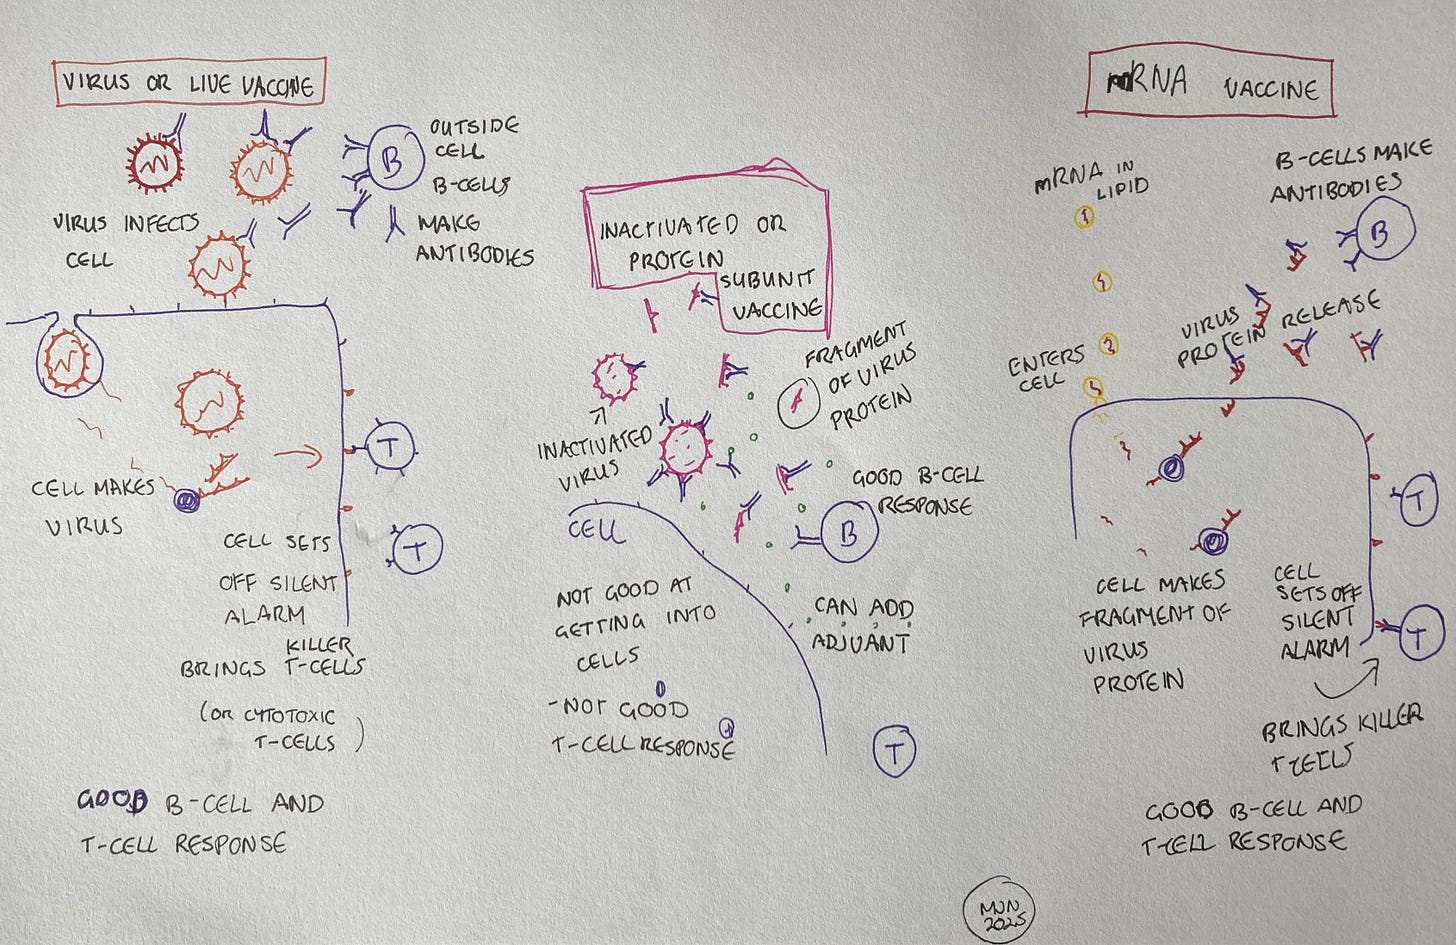 VIRUS OR LIVE VACCINE
B
OUTSIDE
CELL
B-CELLS
MAKE
ANTIBODIES
VIRUS INFECTS
CELL
T
CELL MAKES
VIRUS
T
CELL SETS
OFF SILENT
ALARM
KILLER
BRINGS T-CELLS
(OR CYTOTOXIC
T-CELLS)
GOOD B-CELL AND
T-CELL RESPONSE
INACTIVATED OR
PROTEIN
SUBUNIT
VACCINE
FRAGMENT
OF VIRUS
PROTEIN
INACTIVATED
VIRUS
GOOD B-CELL
RESPONSE
B
CELL
NOT GOOD AT
GETTING INTO
CELLS
-NOT GOOD
T-CELL RESPONSE
CAN ADD
ADJUVANT
T
mRNA VACCINE
mRNA IN
LIPID
B-CELLS MAKE
ANTIBODIES
B
VIRUS
PROTEIN
RELEASE
ENTERS
CELL
T
CELL MAKES
FRAGMENT OF
VIRUS
PROTEIN
CELL
SETS OFF
SILENT
ALARM
T
BRINGS KILLER
T-CELLS
GOOD B-CELL AND
T-CELL RESPONSE
MJN
2025